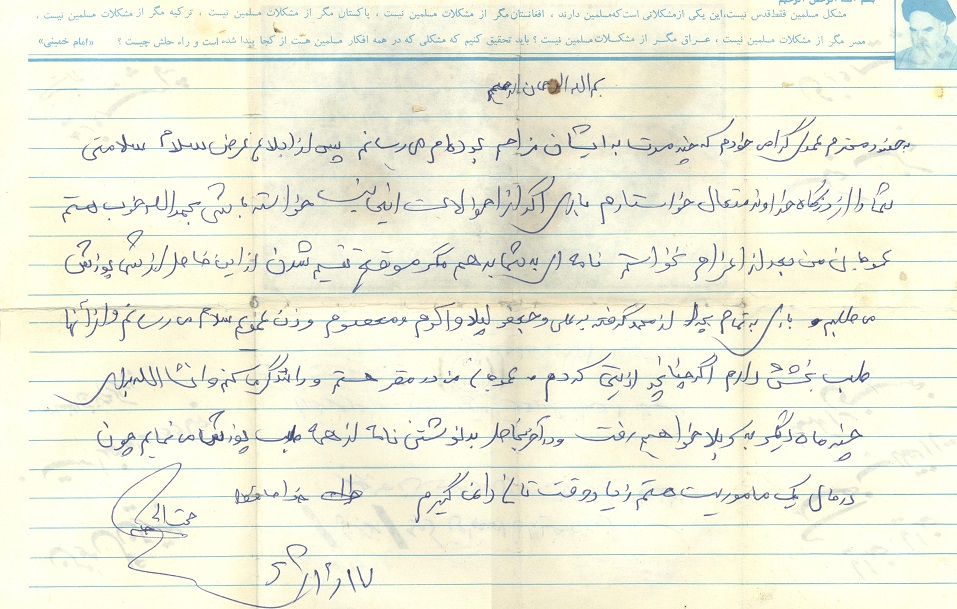 بسم الله الرحمن الرحیم
مشکل مسلمین فقط قدس نیست، این یکی از مشکلاتی است که مسلمین دارند ، افغانستان مگر از مشکلات مسلمین نیست ، پاکستان مگر از مشکلات مسلمین نیست ، ترکیه مگر از مشکلات مسلمین نیست ،
مصر مگر از مشکلات مسلمین نیست ، عراق مگر از مشکلات مسلمین نیست ؟ باید تحقیق کنیم که مشکلی که در همه افکار مسلمین هست از کجا پیدا شده است و راه حلش چیست ؟ «امام خمینی»
بسم الله الرحمان الرحیم
به حضور محترم عموی گرامی خودم که چند مدت به ایشان مزاحم بوده ام می رسانم پس از ابلاغ عرض سلام سلامتی
شما را از درگاه خداوند متعال خواستارم باری اگر از احوالات اینجانب خواسته باشی بحمدالله خوب هستم
عموجان من بعد از اعزام نخواستم نامه ای به شما بدهم مگر موقع تقسیم شدن از این خاطر از شما پوزش
می طلبم و باری به تمام بچه ها از محمد گرفته به علی و جعفر لیلا و اکرم و معصوم و زن عمویم سلام می رسانم و از آنها
طلب بخشش دارم اگر چنانچه اذیتی کردم عموجان من در مقر هستم و رانندگی می کنم و انشاالله برای
چند ماه دیگر به کربلا خواهیم رفت و در آخر بخاطر بد نوشتن نامه از همه طلب پوزش می نمایم چون
در حال یک ماموریت هستم زیاد وقت تان را نمی گیرم خداحافظ